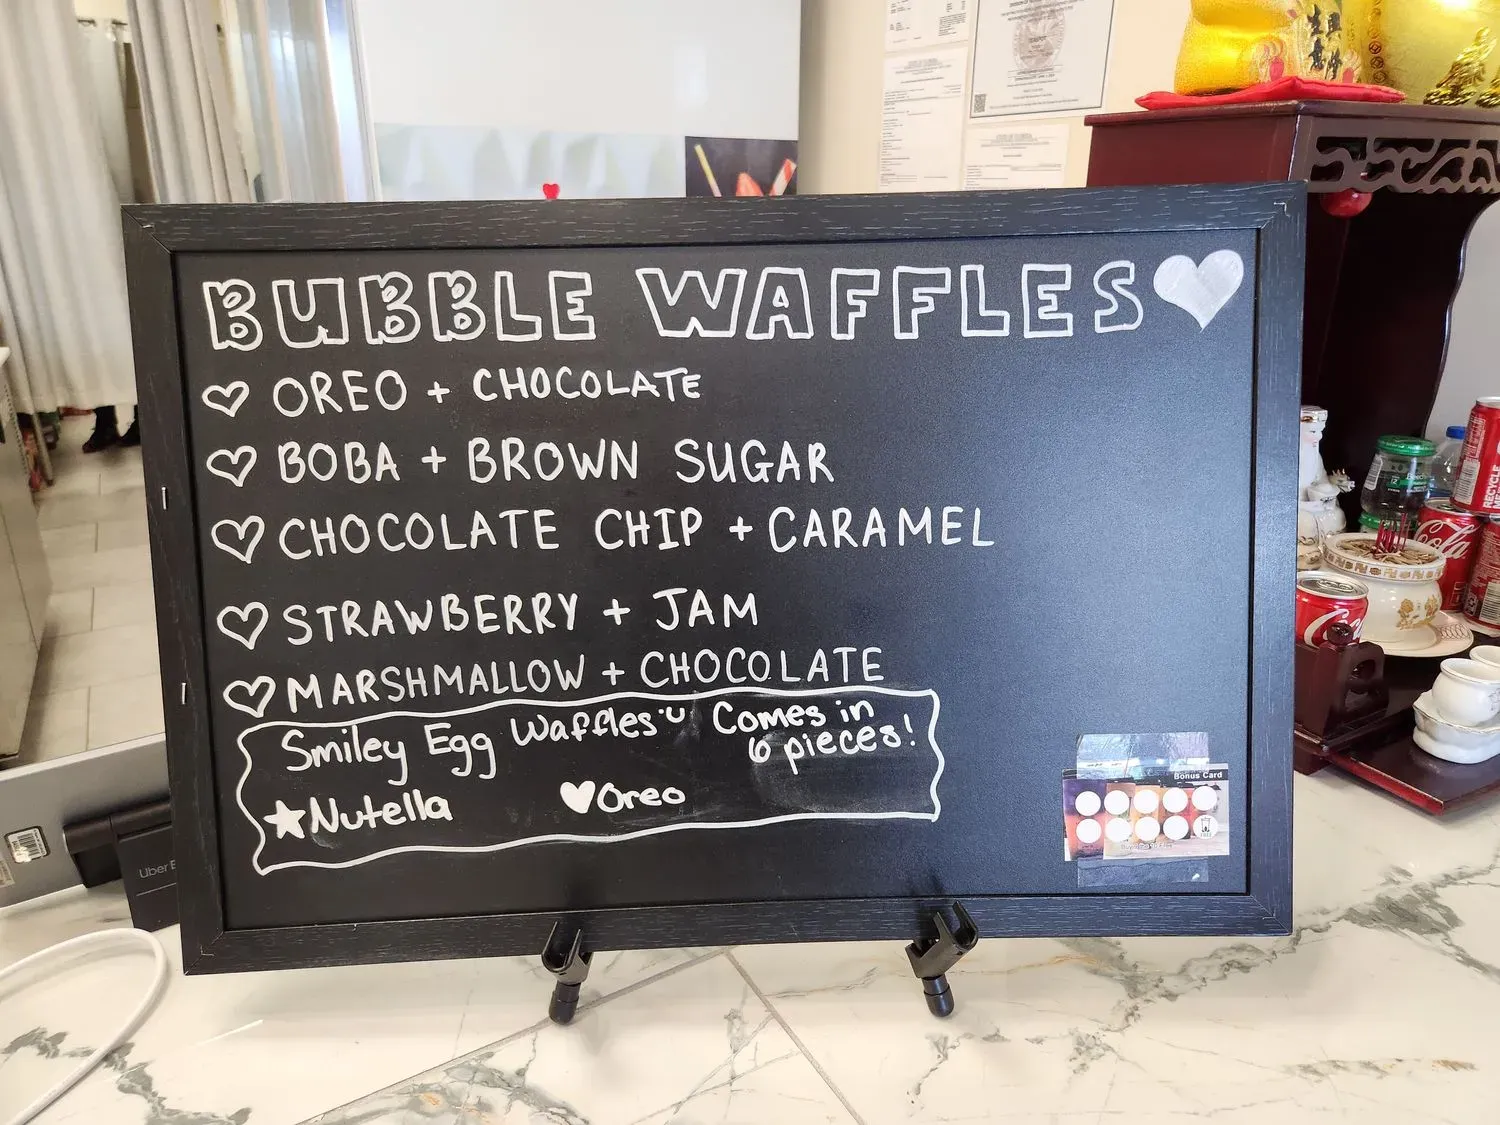 BUBBLE WAFFLES
OREO + CHOCOLATE
BOBA + BROWN SUGAR
CHOCOLATE CHIP + CARAMEL
STRAWBERRY + JAM
MARSHMALLOW + CHOCOLATE
Smiley Egg Waffles Comes in
6 pieces!
Nutella Oreo
Bonus Card
FREE
Uber
生意
RECYCLE
Coca-Cola